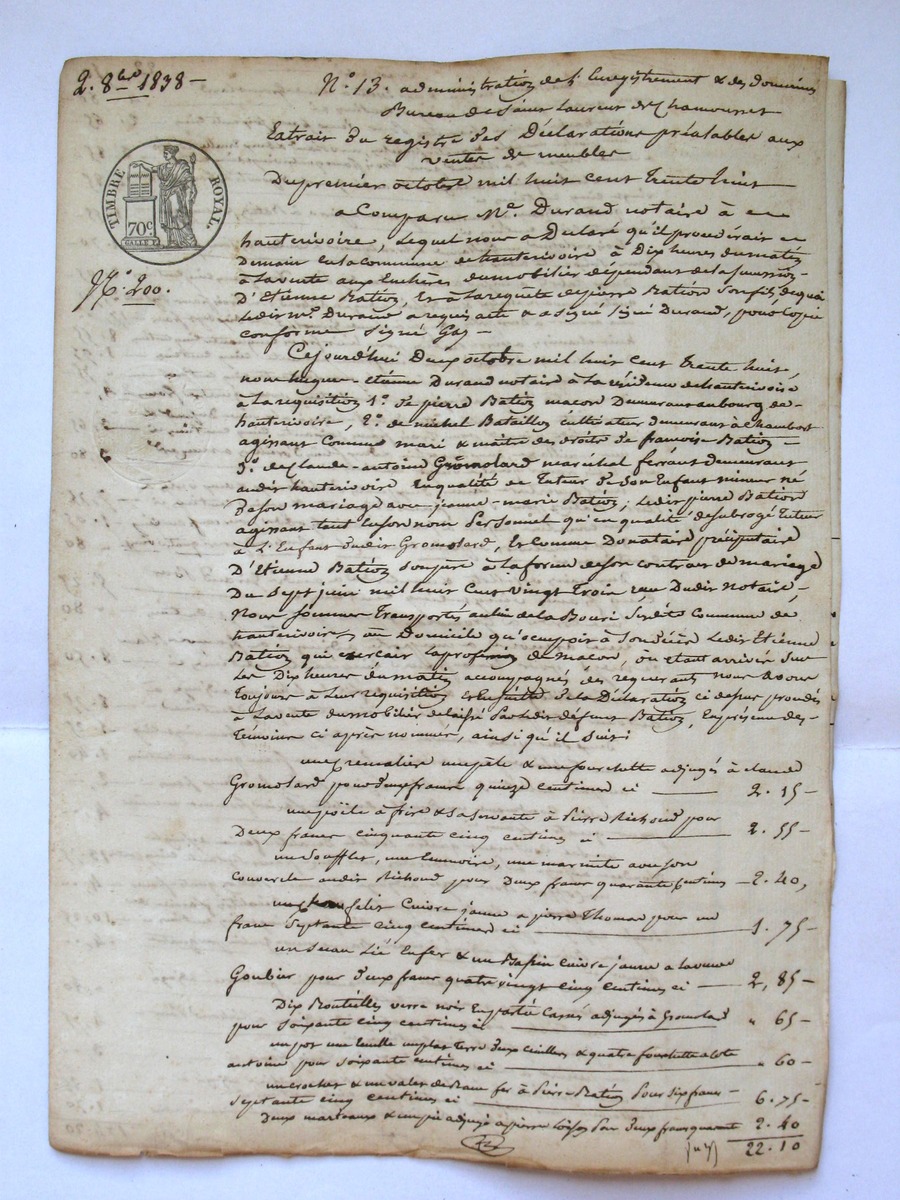 2. 8bre 1838 —
N.o 13. administration de l'Enregistrement & des domaines
Bureau de Saint Laurent de Chamousset
Extrait du registre des Déclarations préalables aux
ventes de meubles
TIMBRE ROYAL
70c
N.o 200.
Du premier octobre mil huit cent trente huit
a Comparu Me. Durand notaire à
hauterivoire, Lequel nous a Déclaré qu'il procéderait
Demain en la commune de hauterivoire à Dix heures du matin
à la vente aux Enchères du mobilier dépendant de la succession
D'Etienne Bation, Et à la requête de pierre Bation son fils, de quoi
Ledit Me. Durand a requis acte & a signé signé Durand, pour copie
conforme signé Gas —
Cejourd'hui Deux octobre mil huit cent trente huit,
nous hugue-Etienne Durand notaire à la résidence de hauterivoire
à la requisition 1.o de pierre Bation macon Demeurant au bourg de
hauterivoire, 2.o de michel Bataillon cultivateur demeurant à Chambost
agissant comme mari & maître des droits de francoise Bation —
3.o de Claude-antoine Gromolard maréchal ferrant demeurant
audit hauterivoire En qualité de tuteur de son Enfant mineur né
De son mariage avec jeanne-marie Bation; Ledit pierre Bation
agissant tant en son nom Personnel qu'en qualité de subrogé tuteur
à L'Enfant dudit Gromolard, Et comme Donataire préciputaire
D'Etienne Bation son père à la forme de son contrat de mariage
Du sept juin mil huit Cent vingt Trois reçu Dudit Notaire,
Nous sommes Transportés au lieu de la commune de
hauterivoire, au Domicile qu'occupoit à son décès Ledit Etienne
Bation qui exercait la profession de macon, où étant arrivés sur
Les Dix heures du matin accompagnés des requerants nous avons
Toujours à Leur requisition Et Ensuite de la Déclaration ci dessus procédé
à La vente du mobilier delaissé Par Ledit défunt Bation, En présence des
Temoins ci après nommés, ainsi qu'il suit:
une Cremaliere une pele & une fourchette adjugés à claude
Gromolard pour deux francs quinze centimes ci — 2. 15 —
une poële à frire & sa servante à Pierre Richoud pour
Deux francs cinquante cinq centimes ci — 2. 55 —
un Soufflet, une Ecumoire, une marmite avec son
Couvercle audit Richoud pour Deux francs quarante Centimes — 2. 40,
une Cuivre jaune a pierre Thomas pour un
franc septante cinq centimes ci — 1. 75 —
un seau Lié En fer & un Bassin cuivre jaune a la veuve
Goubier pour Deux francs quatre vingt cinq centimes ci — 2, 85 —
Dix Bouteilles verre noir En partie Cassés adjugés à Gromolard
pour soixante cinq centimes ci — " 65 —
un pot une un plat terre deux cuillers & quatre fourchette a
antoine pour soixante centimes ci — " 60 —
un crochet & un valet de banc fer à Pierre Bation Pour six francs —
septante cinq centimes ci — 6. 75 —
Deux marteaux & adjugé a pierre Pour Deux francs quarante 2. 40
22. 10